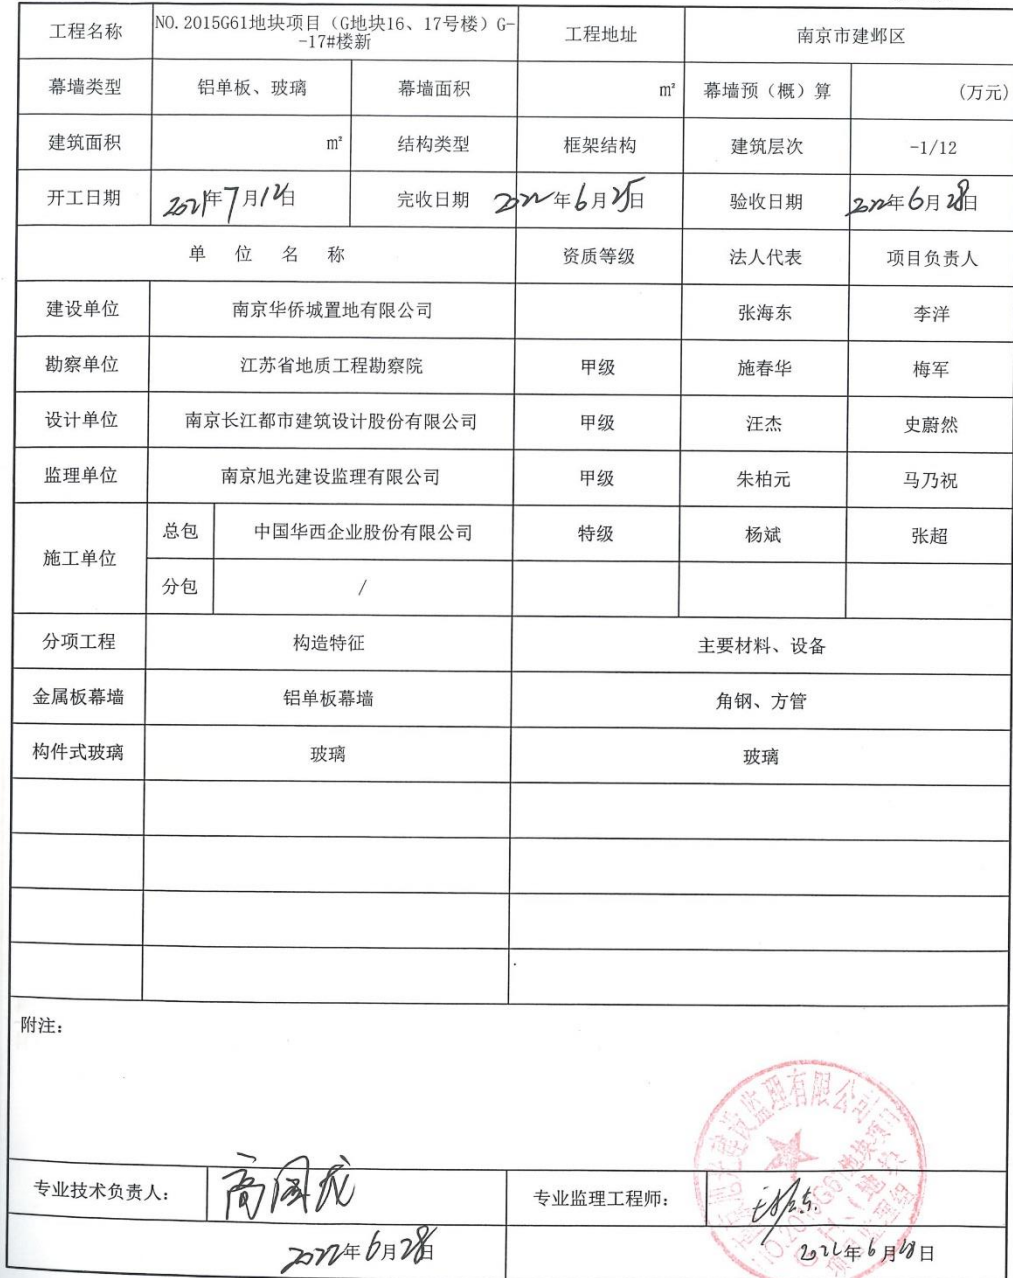 工程名称 NO.2015G61地块项目（G地块16、17号楼）G-
-17#楼新 工程地址 南京市建邺区
幕墙类型 铝单板、玻璃 幕墙面积 m² 幕墙预（概）算 (万元)
建筑面积 m² 结构类型 框架结构 建筑层次 -1/12
开工日期 2021年7月12日 完收日期 2022年6月25日 验收日期 2022年6月28日
单位名称 资质等级 法人代表 项目负责人
建设单位 南京华侨城置地有限公司 张海东 李洋
勘察单位 江苏省地质工程勘察院 甲级 施春华 梅军
设计单位 南京长江都市建筑设计股份有限公司 甲级 汪杰 史蔚然
监理单位 南京旭光建设监理有限公司 甲级 朱柏元 马乃祝
施工单位 总包 中国华西企业股份有限公司 特级 杨斌 张超
分包 /
分项工程 构造特征 主要材料、设备
金属板幕墙 铝单板幕墙 角钢、方管
构件式玻璃 玻璃 玻璃
附注：
专业技术负责人： 高国成 专业监理工程师：
2022年6月28日 2022年6月28日